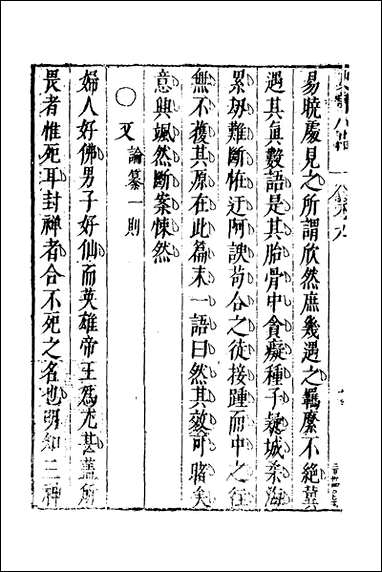 易曉處見之所謂欣然庶幾遇之羈縻不絕冀
遇其眞數語是其胎骨中貪癡種子疑城殺海
累劫難斷怪迂阿諛苟合之徒接踵而中之往
無不獲其源在此篇末一語曰然其效可睹矣
意興颯然斷案悚然
○又論纂一則
婦人好佛男子好仙而英雄帝王爲尤甚蓋所
畏者惟死耳封禪者合不死之名也明知三神